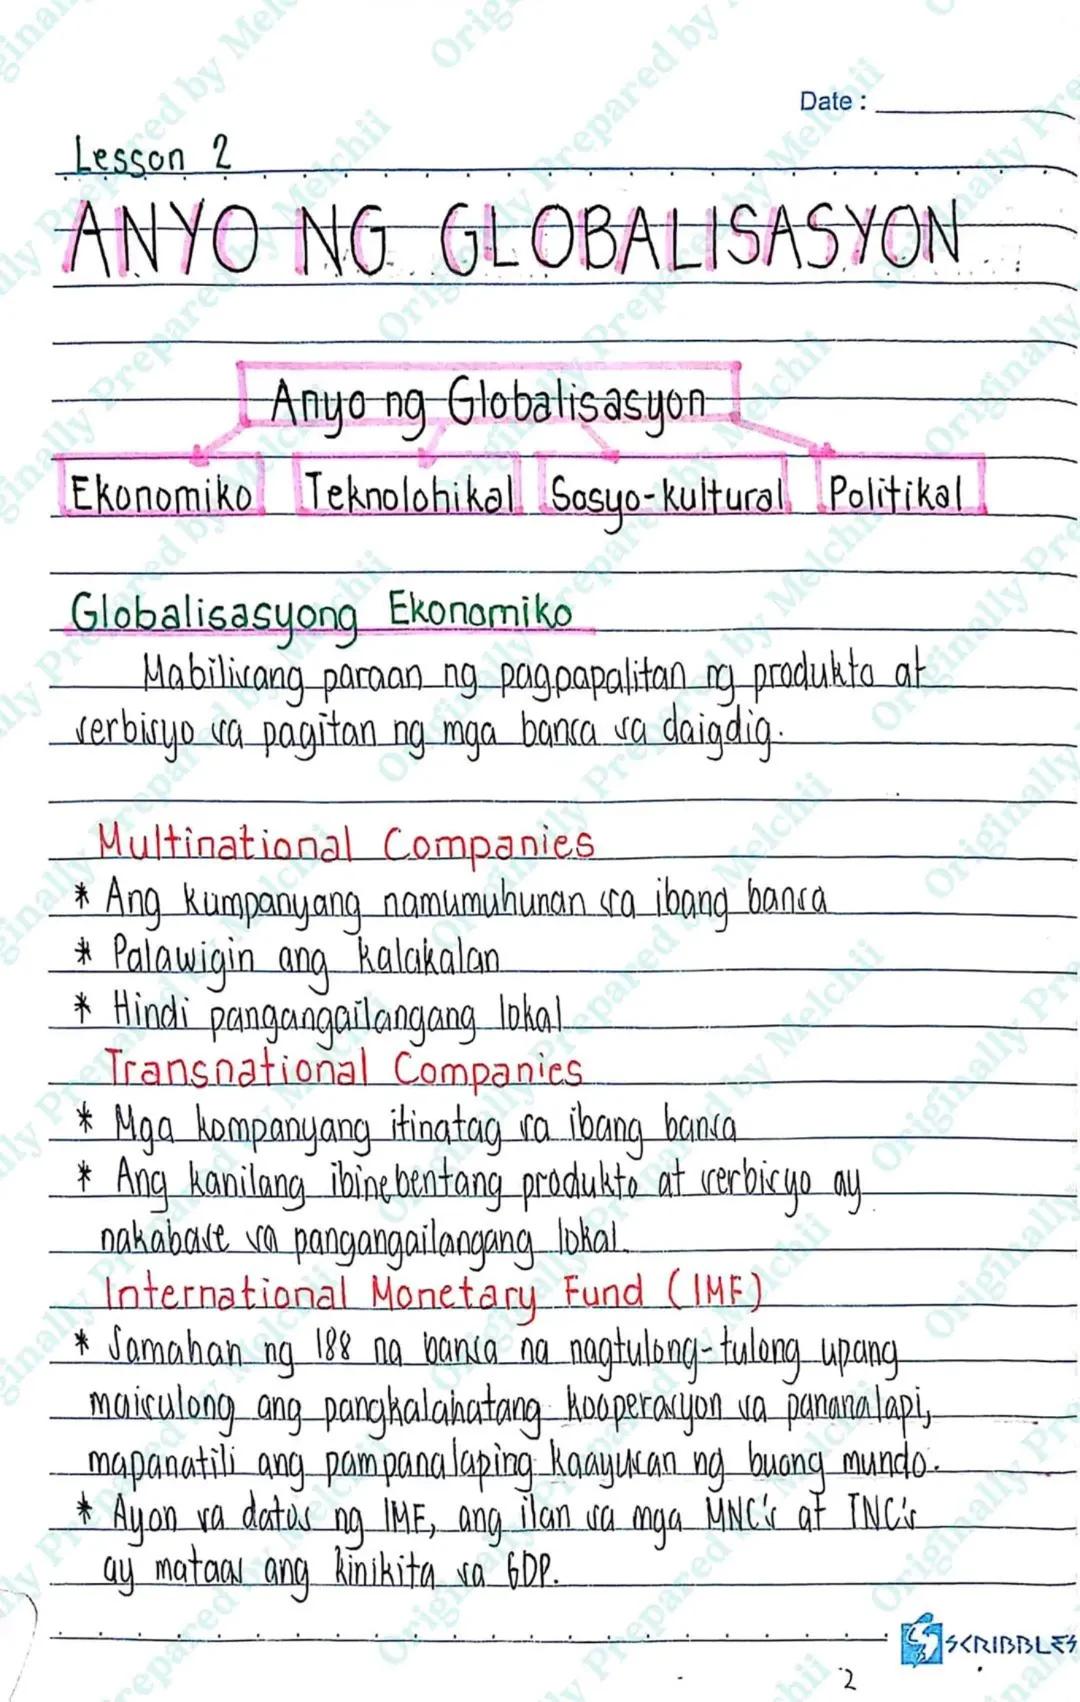 Date :
Lesson 2
ANYO NG GLOBALISASYON
Anyo ng Globalisasyon
Ekonomiko Teknolohikal Sosyo-kultural Politikal
Globalisasyong Ekonomiko
Mabilisang paraan ng pagpapalitan ng produkto at
serbisyo sa pagitan ng mga bansa sa daigdig.
Multinational Companies
* Ang kumpanyang namumuhunan sa ibang bansa
* Palawigin ang kalakalan
* Hindi pangangailangang lokal
Transnational Companies
* Mga kompanyang itinatag sa ibang bansa
* Ang kanilang ibinebentang produkto at serbisyo ay
nakabase sa pangangailangang lokal.
International Monetary Fund (IMF)
* Samahan ng 188 na bansa na nagtulong-tulong upang
maisulong ang pangkalahatang kooperasyon sa pananalapi,
mapanatili ang pampanalaping kaayusan ng buong mundo.
* Ayon sa datos ng IMF, ang ilan sa mga MNC's at TNC's
ay mataas ang kinikita sa GDP.
SCRIBBLES
2
Originally Prepared by Melchii